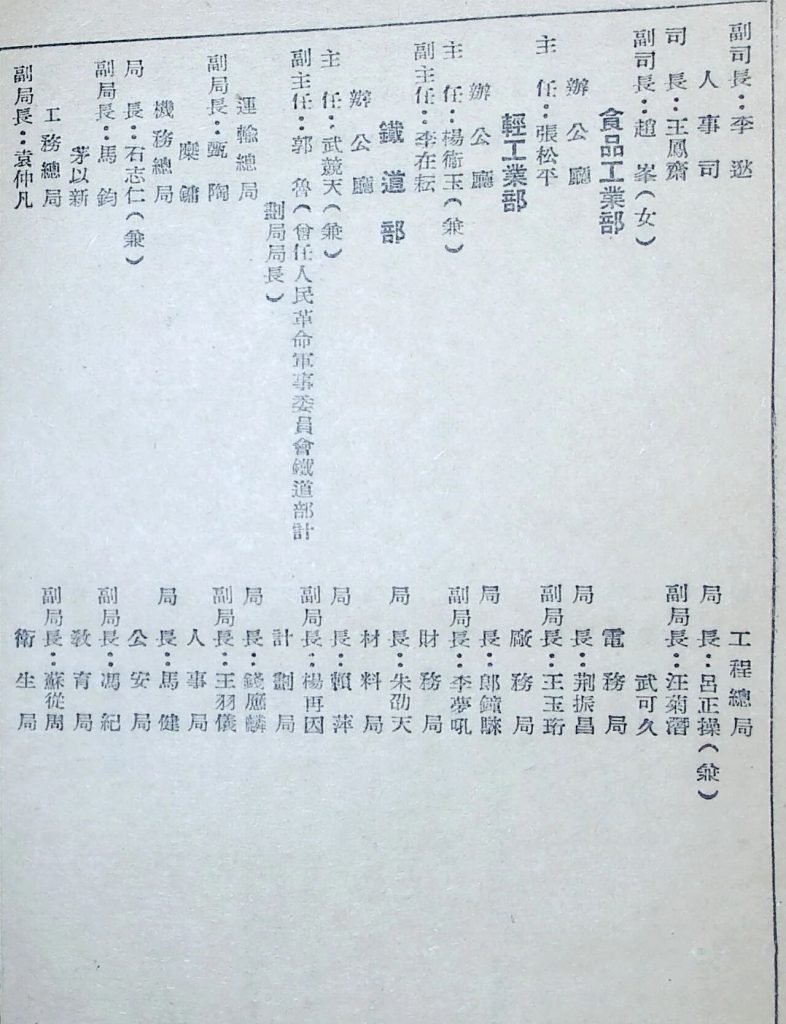 副司長：李逖
人事司
司長：王鳳齋
副司長：趙峯（女）
食品工業部
辦公廳
主任：張松平
輕工業部
辦公廳
主任：楊衞玉（兼）
副主任：李在耘
鐵道部
辦公廳
主任：武競天（兼）
副主任：郭魯（曾任人民革命軍事委員會鐵道部計
劃局局長）
運輸總局
副局長：甄陶
麋鏞
機務總局
局長：石志仁（兼）
副局長：馬鈞
茅以新
工務總局
副局長：袁仲凡
工程總局
局長：呂正操（兼）
副局長：汪菊潛
武可久
電務局
局長：荆振昌
副局長：王玉珩
廠務局
局長：郎鐘騋
副局長：李夢吼
財務局
局長：朱劭天
材料局
局長：賴萍
副局長：楊再因
計劃局
局長：錢應麟
副局長：王羽儀
人事局
局長：馬健
公安局
副局長：馮紀
教育局
副局長：蘇從周
衛生局